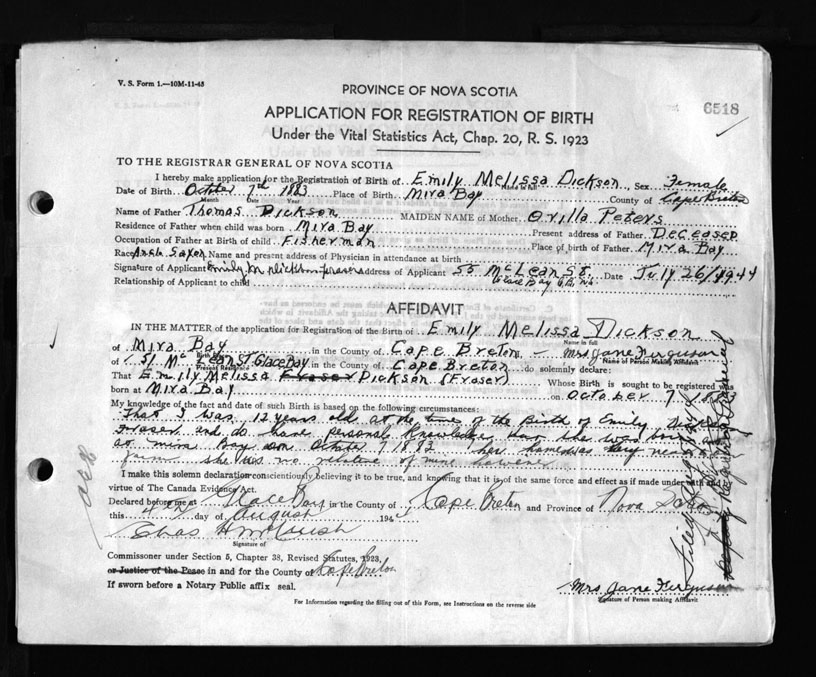 V. S. Form 1.—10M-11-43
PROVINCE OF NOVA SCOTIA
6518
APPLICATION FOR REGISTRATION OF BIRTH
Under the Vital Statistics Act, Chap. 20, R. S. 1923
TO THE REGISTRAR GENERAL OF NOVA SCOTIA
I hereby make application for the Registration of Birth of Emily Melissa Dickson Sex Female
Name in full
Date of Birth October 7th 1883 Place of Birth Mira Bay County of Cape Breton
Month Day Year
Name of Father Thomas Dickson MAIDEN NAME of Mother Orilla Peters
Residence of Father when child was born Mira Bay Present address of Father Deceased
Occupation of Father at Birth of child Fisherman Place of birth of Father Mira Bay
Race Saxon Name and present address of Physician in attendance at birth
Signature of Applicant Emily M Dickson address of Applicant 55 McLean St. Date July 26/1944
Relationship of Applicant to child Glace Bay C.B. N.S
AFFIDAVIT
IN THE MATTER of the application for Registration of the Birth of Emily Melissa Dickson
Name in full
of Mira Bay in the County of Cape Breton, Mrs Jane Ferguson
Birth Place
Name of Person Making Affidavit
of 51 McLean St Glace Bay in the County of Cape Breton do solemnly declare:
Present Residence
That Emily Melissa Fraser Dickson (Fraser) Whose Birth is sought to be registered was
born at Mira Bay on October 7, 1883
My knowledge of the fact and date of such Birth is based on the following circumstances:
That I was 12 years old at the time of the Birth of Emily
Fraser and do have personal knowledge that she was born
at Mira Bay on 7 1883 her home was very near
she was no relative of mine however
I make this solemn declaration conscientiously believing it to be true, and knowing that it is of the same force and effect as if made under oath and by
virtue of The Canada Evidence Act.
Declared before me at Glace Bay in the County of Cape Breton and Province of Nova Scotia
this day of August 194
Chas
Signature of
Commissioner under Section 5, Chapter 38, Revised Statutes, 1923,
or Justice of the Peace in and for the County of Cape Breton
If sworn before a Notary Public affix seal.
Mrs Jane Ferguson
Signature of Person making Affidavit
For Information regarding the filling out of this Form, see Instructions on the reverse side
Filed
Deputy Registrar General